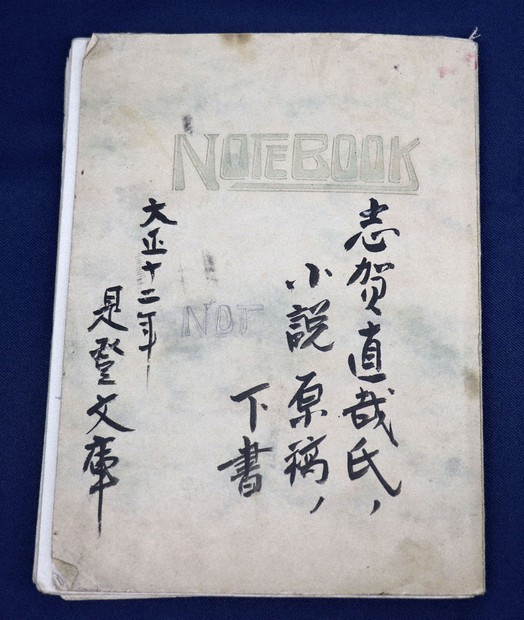 NOTEBOOK
志賀直哉氏,
小説 原稿,
下書
NOT
大正十二年
是登文庫